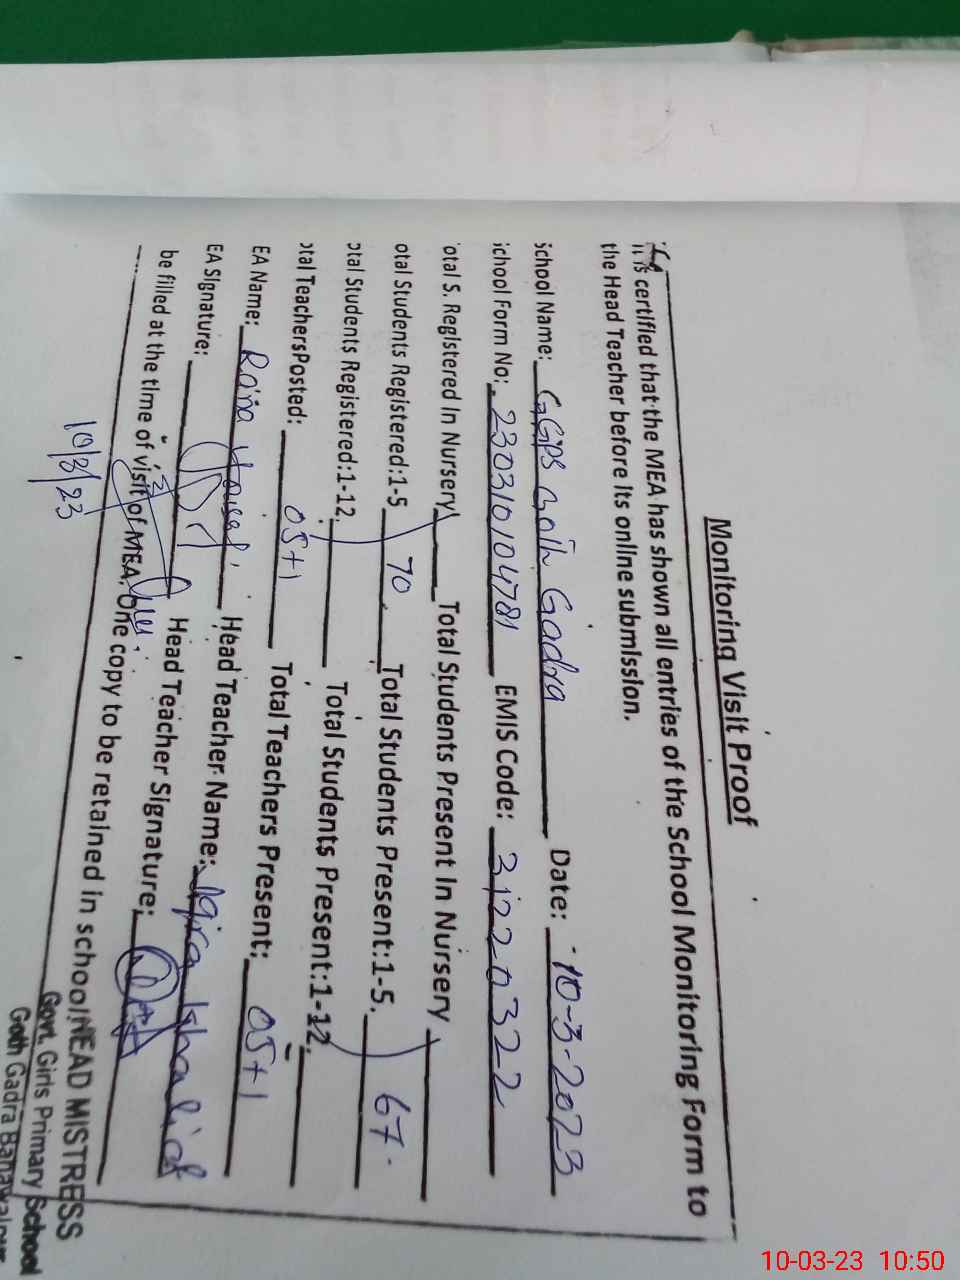 Monitoring Visit Proof
It is certified that the MEA has shown all entries of the School Monitoring Form to
the Head Teacher before its online submission.
School Name: GGPS Goth Gadra Date: 10-3-2023
School Form No: 230310104781 EMIS Code: 31220322
otal S. Registered In Nursery Total Students Present In Nursery
otal Students Registered:1-5 70 Total Students Present:1-5. 67.
otal Students Registered:1-12. Total Students Present:1-12.
otal TeachersPosted: 05+1 Total Teachers Present: 05+1
EA Name: Rana Head Teacher Name: Iqra Khalid
EA Signature: Head Teacher Signature:
be filled at the time of visit of MEA, One copy to be retained in school.
10/3/23
HEAD MISTRESS
Govt. Girls Primary School
Goth Gadra Bahawalpur
10-03-23 10:50